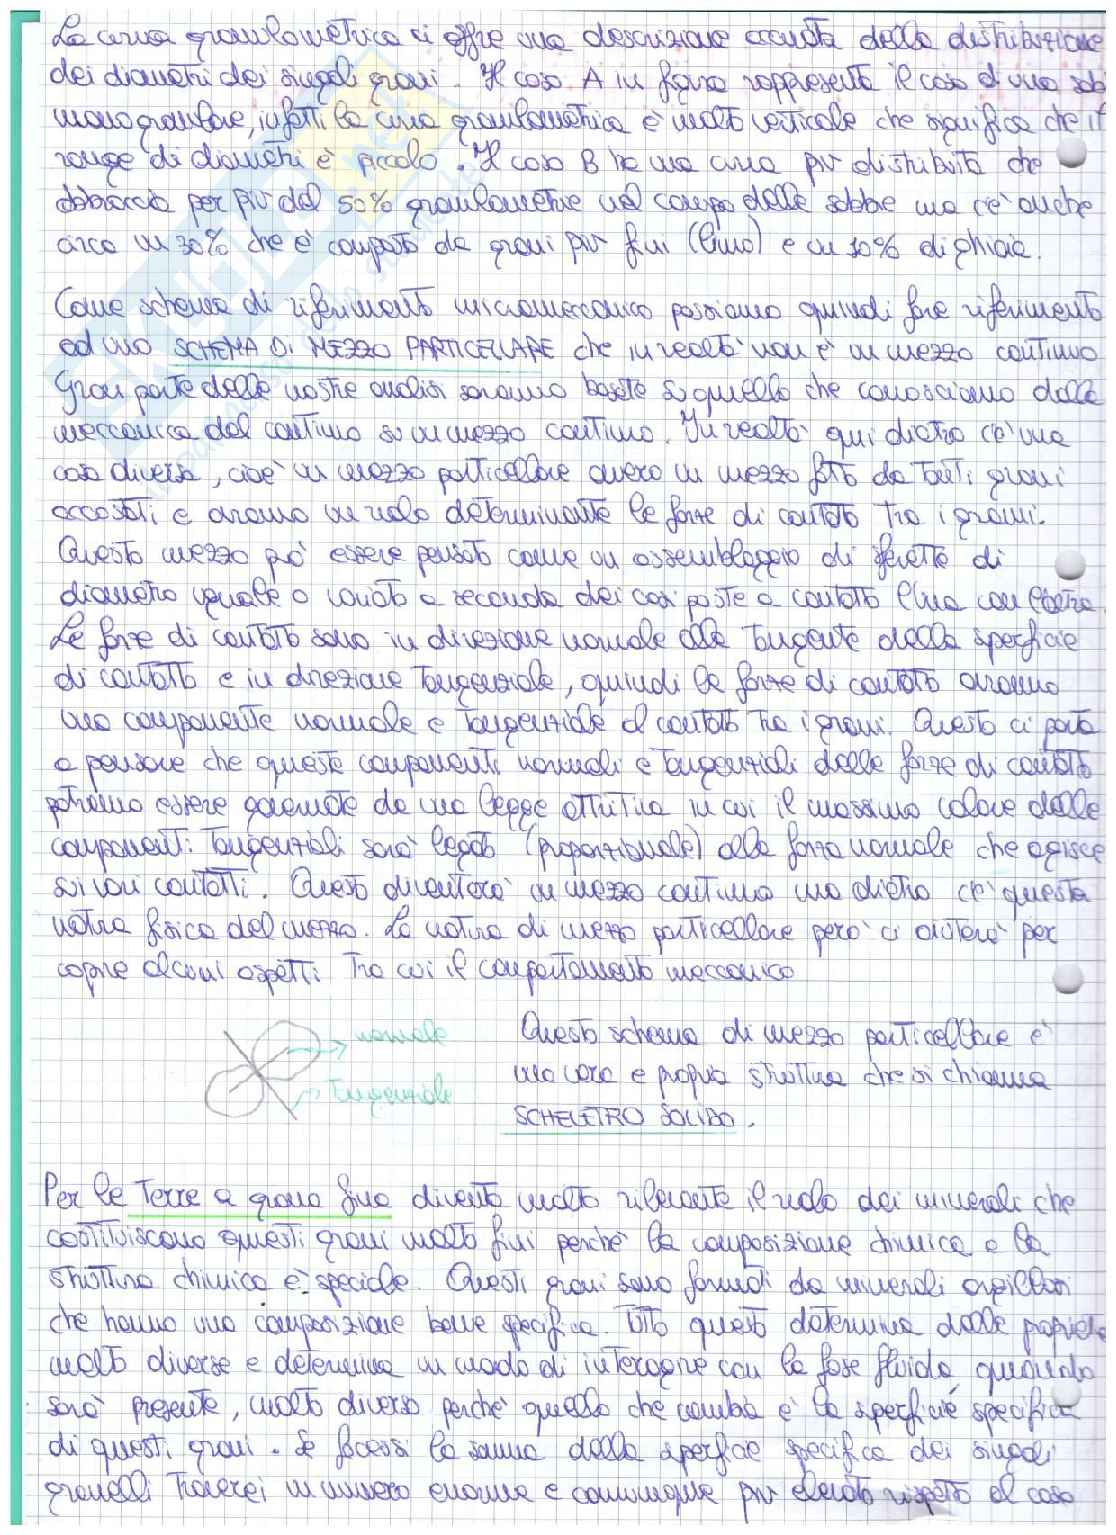 La curva granulometrica ci offre una descrizione accurata della distribuzione
dei diametri dei singoli grani. Il caso A in figura rappresenta il caso d'una sab
monogranulare, infatti la curva granulometrica è molto verticale che significa che il
range di diametri è piccolo. Il caso B ha una curva più distribuita che
abbraccia per più del 50% granulometrie nel campo delle sabbie ma c'è anche
circa un 30% che è composto da grani più fini (limo) e un 10% di ghiaia.
Come schema di riferimento micromeccanico possiamo quindi fare riferimento
ad uno SCHEMA DI MEZZO PARTICELLARE che in realtà non è un mezzo continuo
Gran parte delle nostre analisi saranno basate su quello che conosciamo dalla
meccanica del continuo su un mezzo continuo. In realtà qui dietro c'è una
cosa diversa, cioè un mezzo particellare ovvero un mezzo fatto da tanti grani
accostati e avranno un ruolo determinante le forze di contatto tra i grani.
Questo mezzo può essere pensato come un assemblaggio di sferette di
diametro uguale o variato a seconda dei casi poste a contatto l'una con l'altra.
Le forze di contatto sono in direzione normale alla tangente della superficie
di contatto e in direzione tangenziale, quindi le forze di contatto avranno
una componente normale e tangenziale al contatto tra i grani. Questo ci porta
a pensare che queste componenti normali e tangenziali delle forze di contatto
potranno essere governate da una legge attritiva in cui il massimo valore delle
componenti tangenziali sarà legato (proporzionale) alla forza normale che agisce
sui vari contatti. Questo diventerà un mezzo continuo ma dietro c'è questa
natura fisica del mezzo. La natura di mezzo particellare però ci aiuterà per
capire alcuni aspetti tra cui il comportamento meccanico
normale
tangenziale
Questo schema di mezzo particellare è
una vera e propria struttura che si chiama
SCHELETRO SOLIDO.
Per le terre a grana fine diventa molto rilevante il ruolo dei minerali che
costituiscono questi grani molto fini perché la composizione chimica e la
struttura chimica è speciale. Questi grani sono formati da minerali argillosi
che hanno una composizione ben specifica. Tutto questo determina delle proprietà
molto diverse e determina un modo di interagire con la fase fluida, quando
sarà presente, molto diverso perché quello che cambia è la superficie specifica
di questi grani. Se facessi la somma della superficie specifica dei singoli
granelli troverei un numero enorme e comunque più elevato rispetto al caso